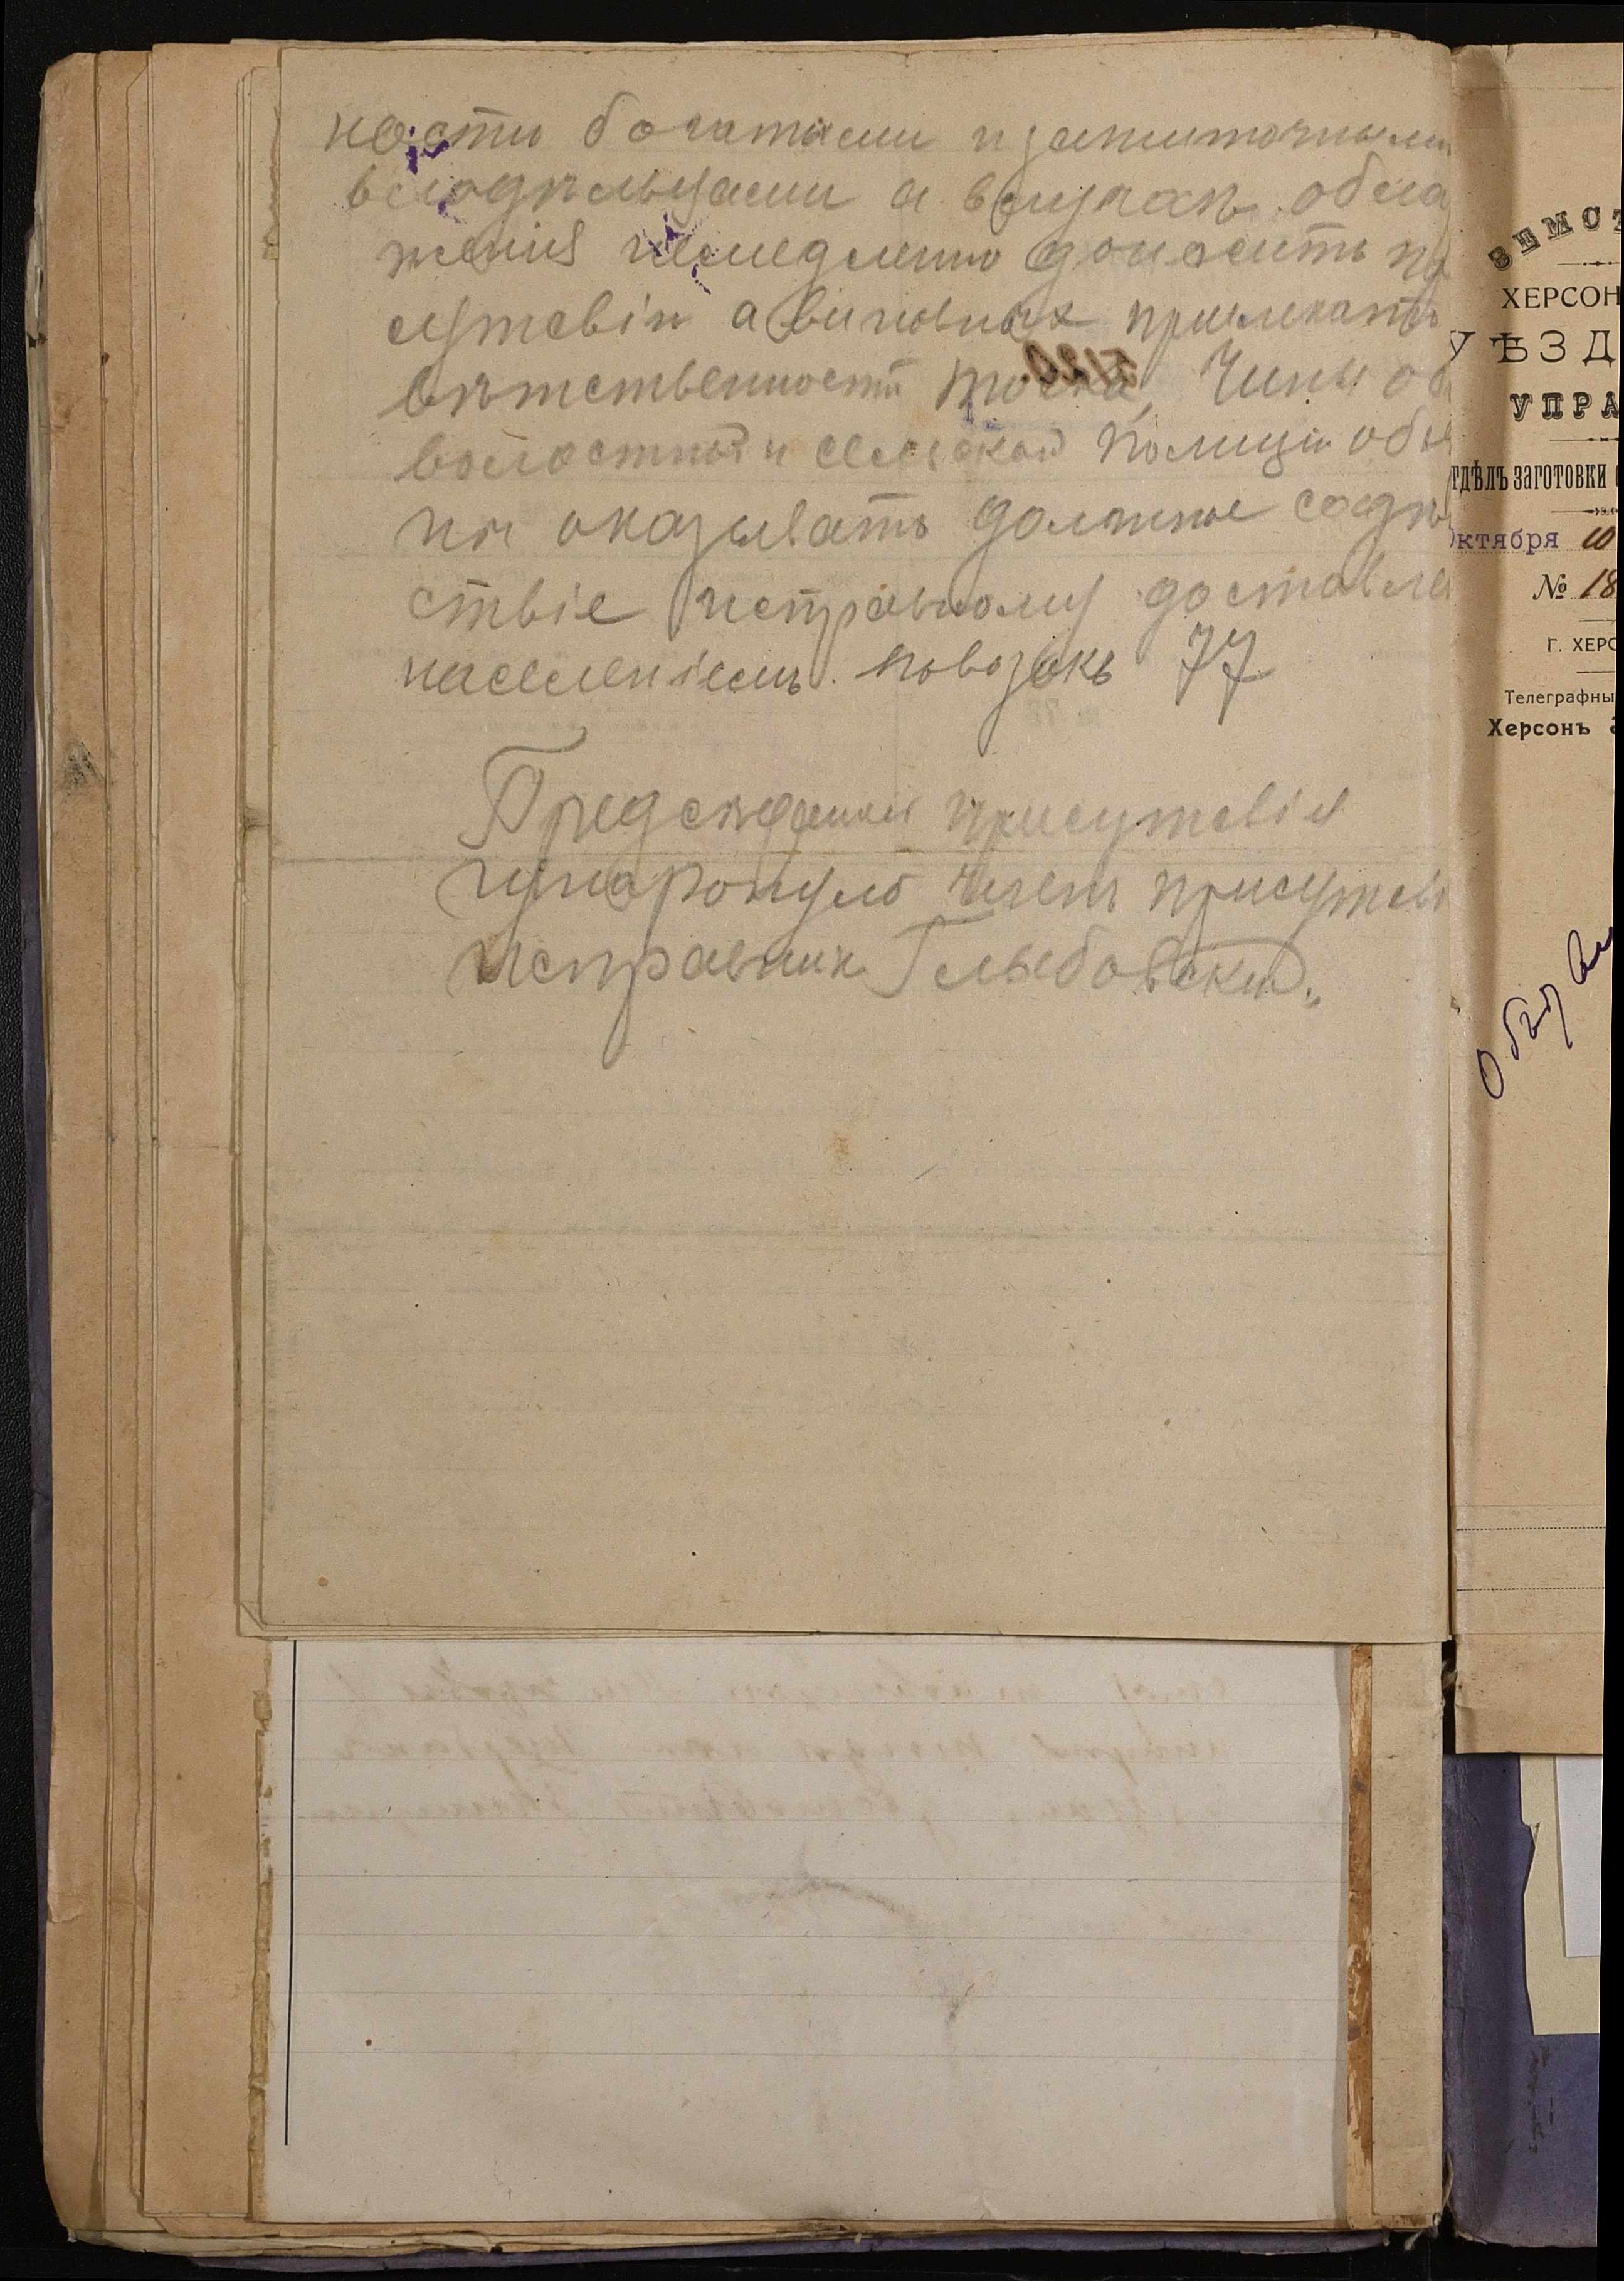 ности богатыми и зажиточными
владѣльцами а в случаѣ обна
женія немедленно доносить пр
сутствію а виновных привлекать
вѣтственности точка, Чины об
волостной и сельской полиции обя
ны оказывать должное содѣй
ствіе исправному доставле
населеніемъ повозокъ 77
Председатель присутствія
член присутств
исправник Глыбовский.
ЗЕМСТ
ХЕРСОН
УѢЗД
УПРА
ТДѢЛЪ ЗАГОТОВКИ
Октября 10
№ 18
Г. ХЕРС
Телеграфны
Херсонъ